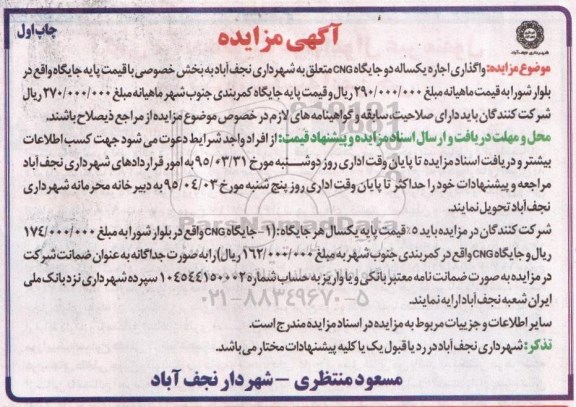 چاپ اول
آگهی مزایده
موضوع مزایده: واگذاری اجاره یکساله دو جایگاه CNG متعلق به شهرداری نجف آباد به بخش خصوصی با قیمت پایه جایگاه واقع در
بلوار شورا به قیمت ماهیانه مبلغ ۲۹۰/۰۰۰/۰۰۰ ریال و قیمت پایه جایگاه کمربندی جنوب شهر ماهیانه مبلغ ۲۷۰/۰۰۰/۰۰۰ ریال
شرکت کنندگان باید دارای صلاحیت، سابقه و گواهینامه های لازم در خصوص موضوع مزایده از مراجع ذیصلاح باشند.
محل و مهلت دریافت و ارسال اسناد مزایده و پیشنهاد قیمت: از افراد واجد شرایط دعوت می شود جهت کسب اطلاعات
بیشتر و دریافت اسناد مزایده تا پایان وقت اداری روز دوشنبه مورخ ۹۵/۰۳/۳۱ به امور قراردادهای شهرداری نجف آباد
مراجعه و پیشنهادات خود را حداکثر تا پایان وقت اداری روز پنج شنبه مورخ ۹۵/۰۴/۰۳ به دبیرخانه محرمانه شهرداری
نجف آباد تحویل نمایند.
شرکت کنندگان در مزایده باید ۵٪ قیمت پایه یکسال هر جایگاه: (۱- جایگاه CNG واقع در بلوار شورا به مبلغ ۱۷۴/۰۰۰/۰۰۰
ریال و جایگاه CNG واقع در کمربندی جنوب شهر به مبلغ ۱۶۲/۰۰۰/۰۰۰ ریال) را به صورت جداگانه به عنوان ضمانت شرکت
در مزایده به صورت ضمانت نامه معتبر بانکی و یا واریز به حساب شماره ۱۰۴۵۴۴۱۵۰۰۰۲ سپرده شهرداری نزد بانک ملی
ایران شعبه نجف آباد ارایه نمایند.
سایر اطلاعات و جزییات مربوط به مزایده در اسناد مزایده مندرج است.
تذکر: شهرداری نجف آباد در رد یا قبول یک یا کلیه پیشنهادات مختار می باشد.
مسعود منتظری - شهردار نجف آباد
ParsNamadData
۰۲۱-۸۸۳۴۹۶۷۰-۵